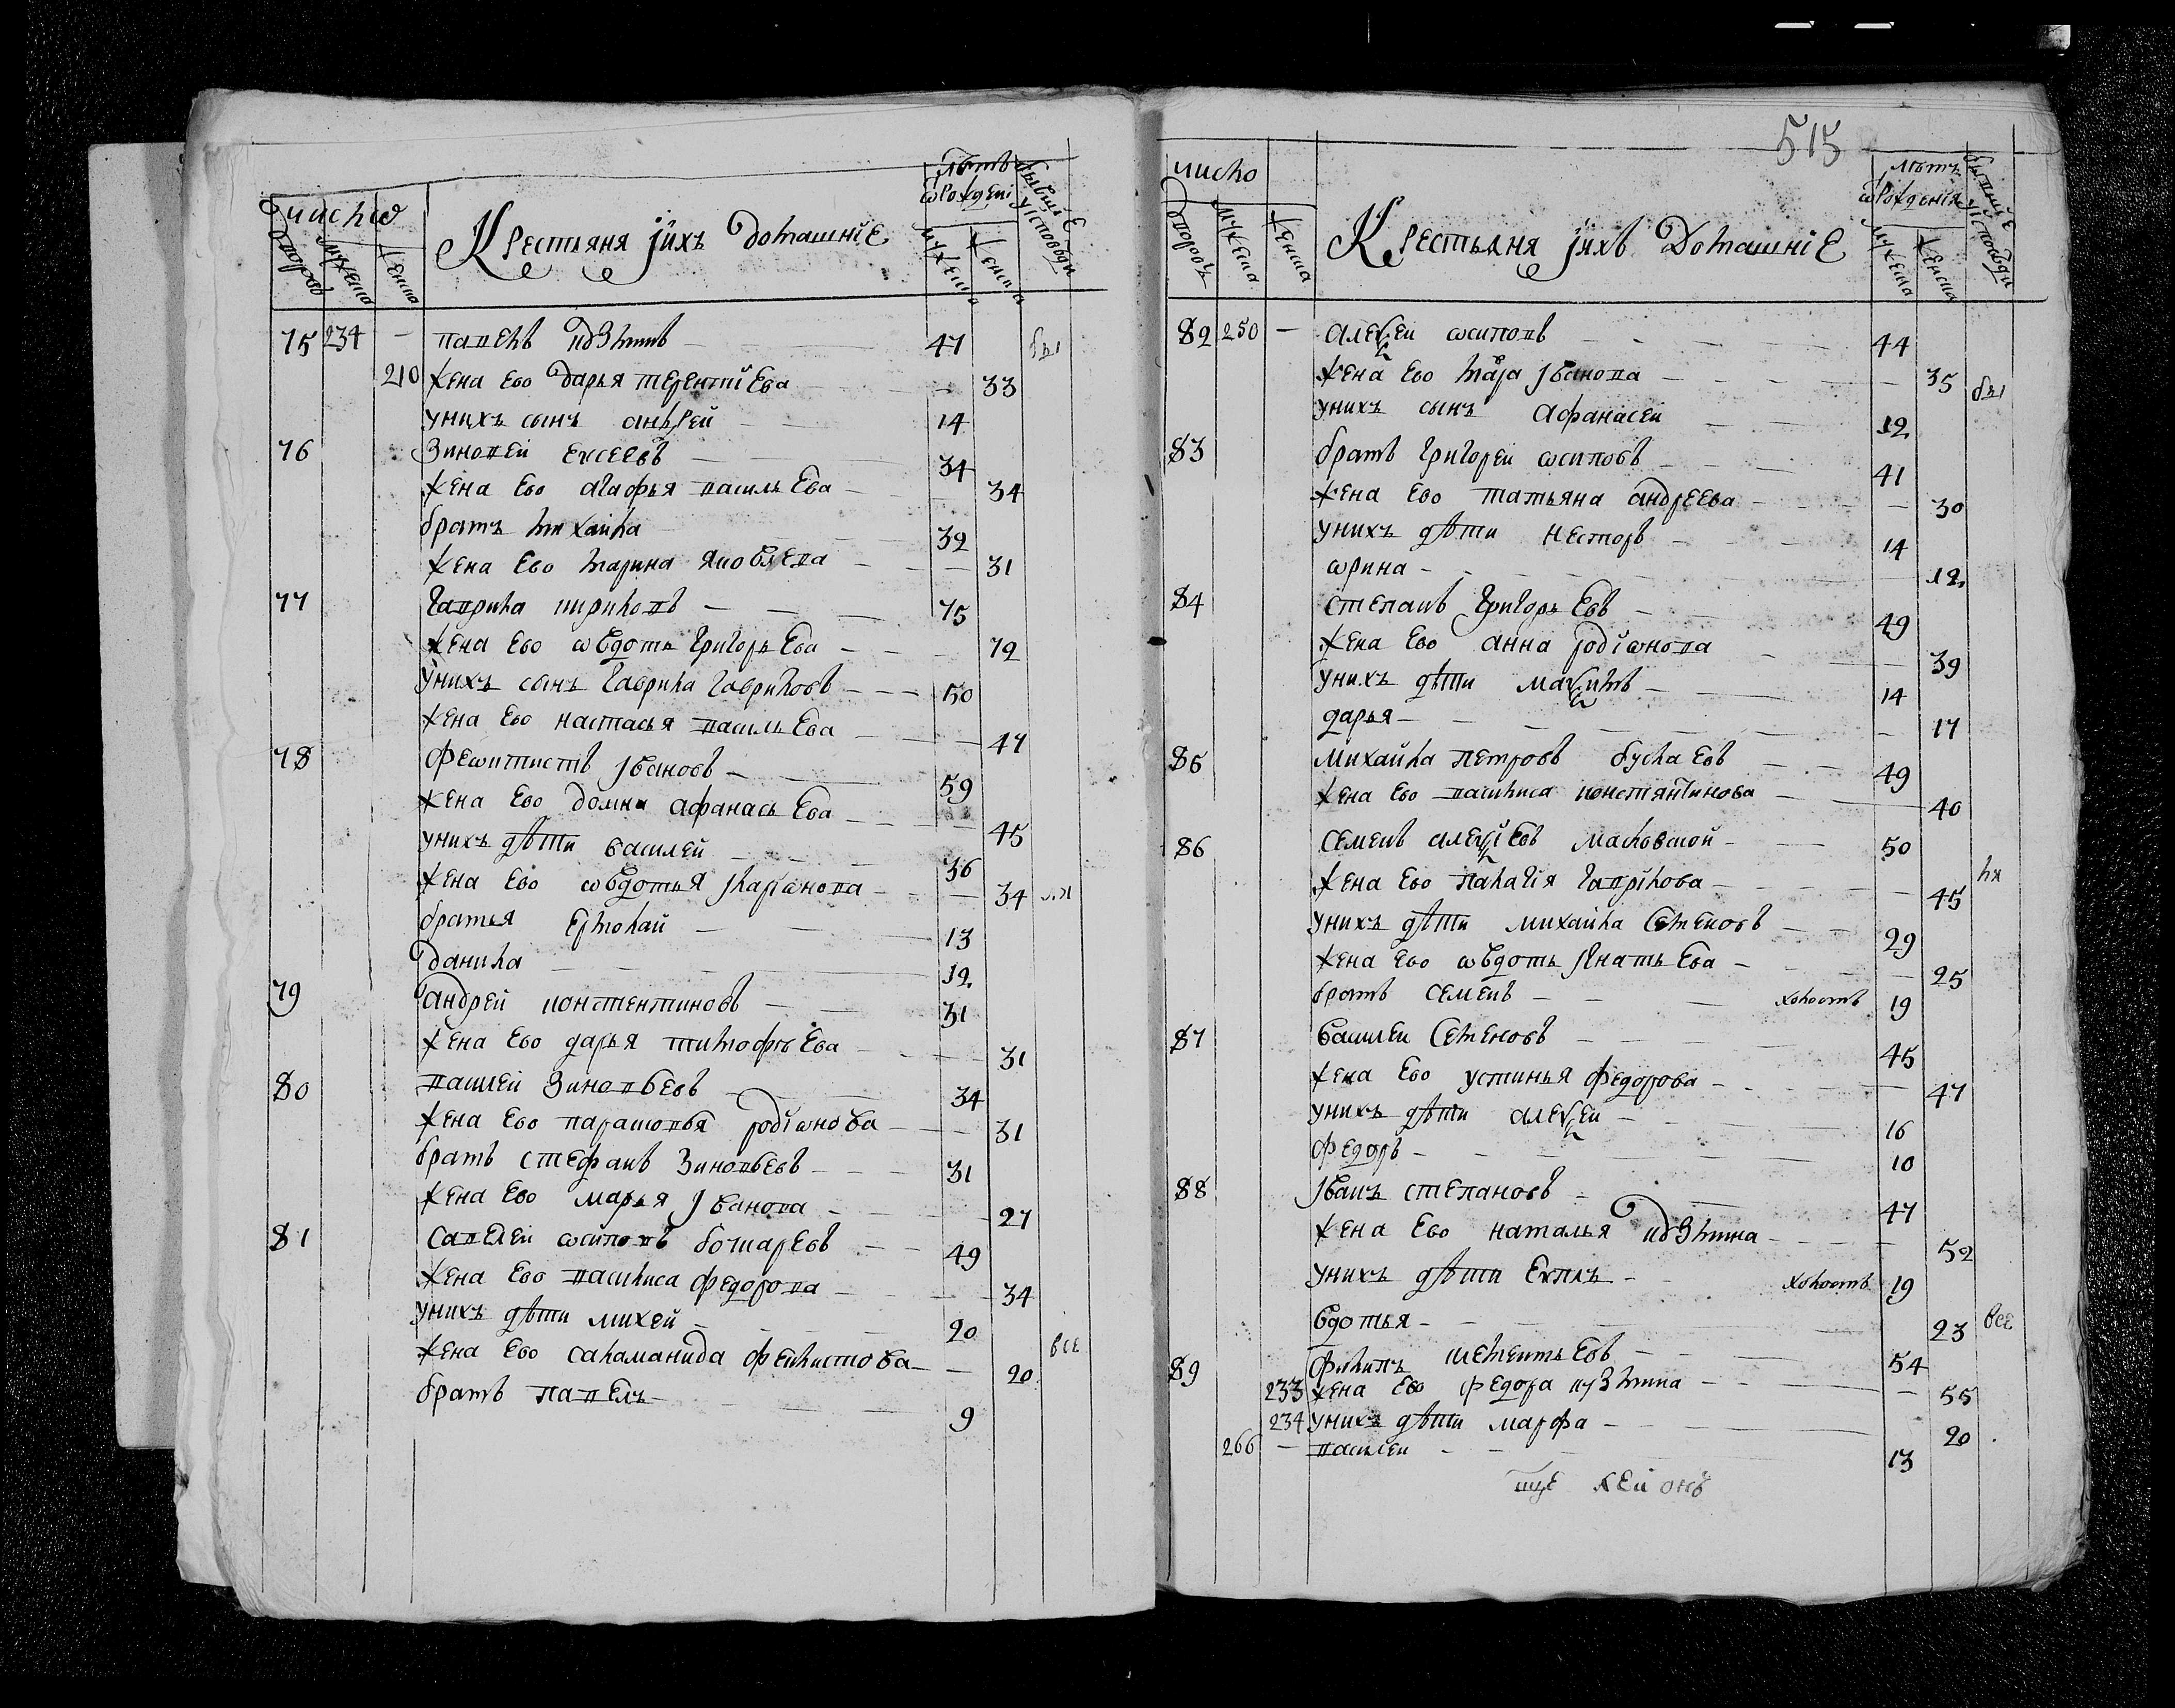 число
дворовъ мужеска женска
Крестьяня јихъ домашніе
лѣтъ ѿ рождені
мужеска женска
бывшіе у ісповѣди
75 234 — павелъ кузминъ 47 бы
210 жена ево дарья терентиіева 33
у нихъ сынъ андрей 14
76 зиновей евсеевъ 34
жена ево агафья васильева 34
братъ михаила 32
жена ево марина яковлева 31
77 гаврила кириловъ 75
жена ево ѡвдотья григорьева 72
у нихъ сынъ гаврила гавриловъ 50
жена ево настасья васильева 47
78 феѡктистъ јвановъ 59
жена ево домна афанасьева 45
у нихъ дѣти василей 36
жена ево ѡвдотья јларіѡнова 34
братья ермолай 13
данила 12
79 андрей констентиновъ 31
жена ево дарья тимофѣева 31
80 василей зиновьевъ 34
жена ево парасковья родіѡнова 31
братъ стефанъ зиновьевъ 31
жена ево марья јванова 27
81 савелей ѡсиповъ бочаревъ 49
жена ево василиса федорова 34
у нихъ дѣти михей 20
жена ево саламанида феклистова 20 все
братъ павелъ 9
515
число
дворовъ мужеска женска
Крестьяня јихъ домашніе
лѣтъ ѿ рожденія
мужеска женска
бывшіе у ісповѣди
82 250 — алеѯей ѡсиповъ 44
жена ево мара јванова 35 бы
у нихъ сынъ афанасей 12
83 братъ григорей ѡсиповъ 41
жена ево татьяна андреева 30
у нихъ дѣти несторъ 14
ѡрина 12
84 степанъ григорьевъ 49
жена ево анна родіѡнова 39
у нихъ дѣти маѯимъ 14
дарья 17
85 михайла петровъ булаевъ 49
жена ево василиса констянтинова 40
86 семенъ алеѯіевъ масловской 50
жена ево палагія гаврілова 45
у нихъ дѣти михайла семеновъ 29
жена ево ѡвдотья јгнатьева 25
братъ семенъ холостъ 19
87 василей семеновъ 45
жена ево устинья федорова 47
у нихъ дѣти алеѯей 16
федоръ 10
88 јванъ степановъ 47
жена ево наталья кузмина 52
у нихъ дѣти евплъ холостъ 19
овдотья 23 все
89 филипъ клементьевъ 54
233 жена ево федора кузмина 55
234 у нихъ дѣти марфа 20
266 — василей 13